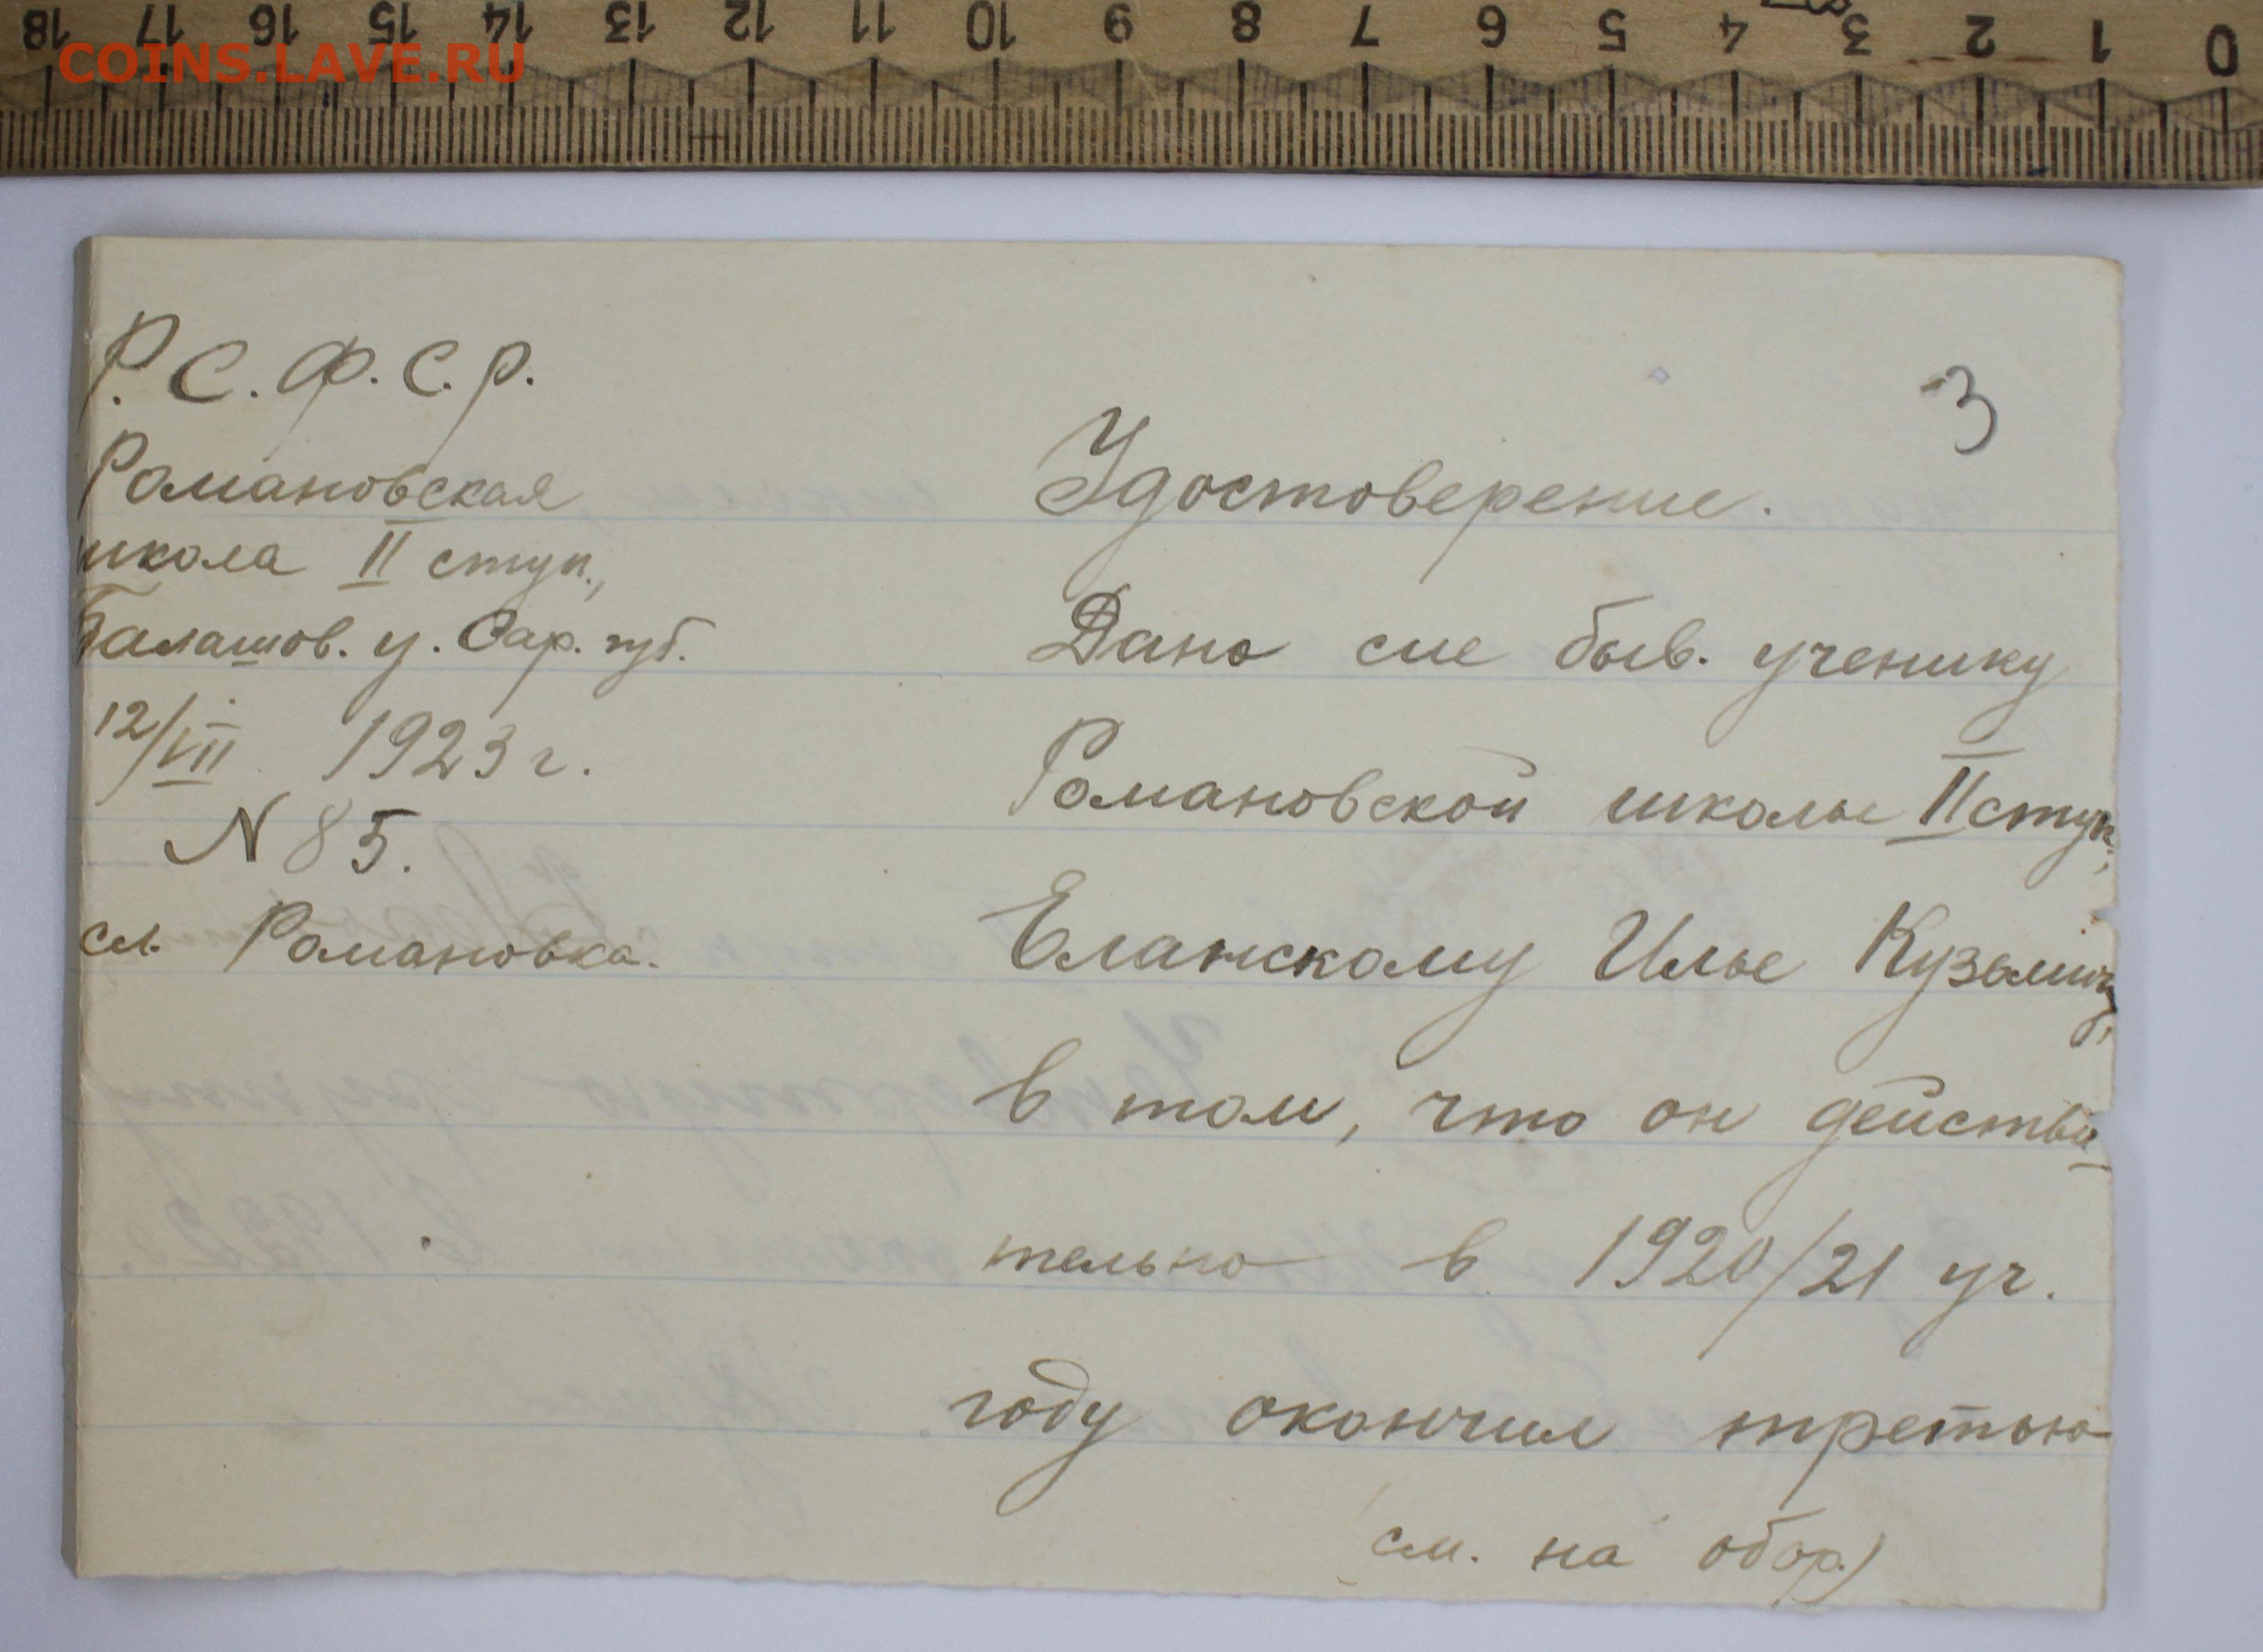 18 17 16 15 14 13 12 11 10 9 8 7 6 5 4 3 2 1 0
COINS.LAVE.RU
Р.С.Ф.С.Р.
Романовская
школа II ступ.,
Балашов. у. Сар. губ.
12/VII 1923 г.
N 85.
сл. Романовка.
3
Удостоверение.
Дано сие быв. ученику
Романовской школы II ступ.,
Еланскому Илье Кузьмичу,
в том, что он действи-
тельно в 1920/21 уч.
году окончил третью
см. на обор.)